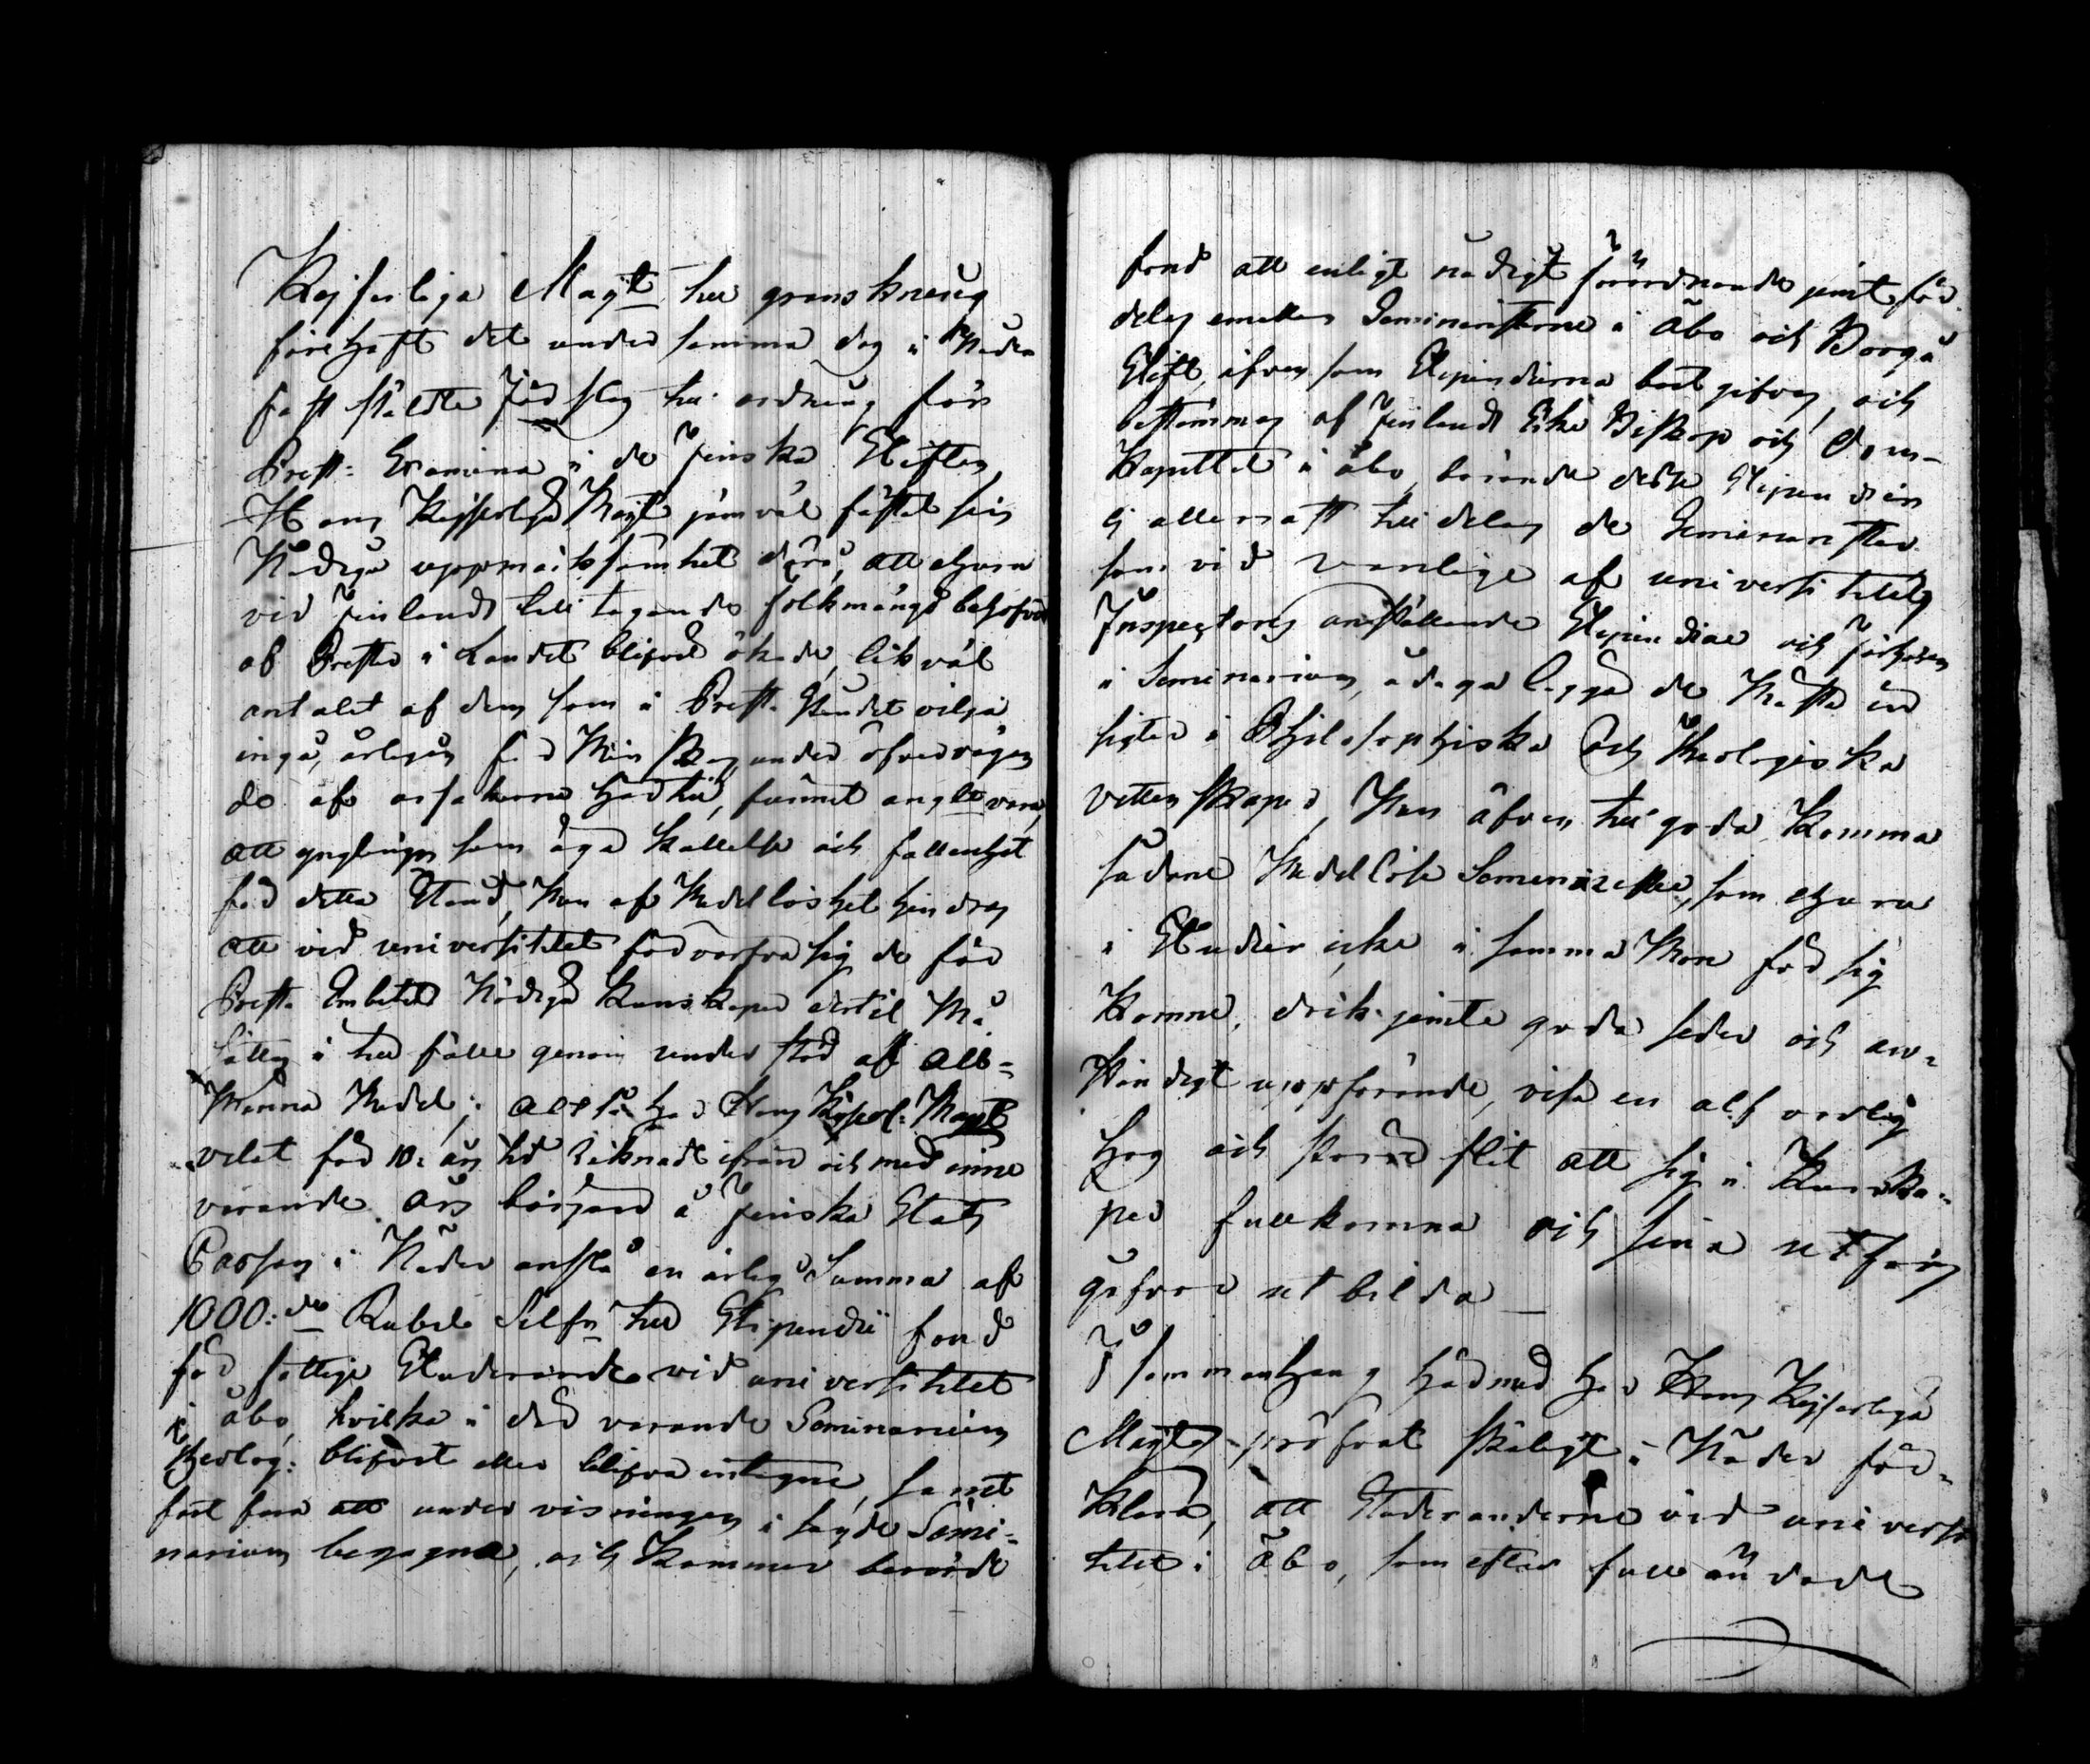 Kejserliga Maj:t till granskning
förehaft det under samma dag i Nåder
fast stäldte förslag till ordning för
Prest: Examina i de finska Stiften,
Hans Kejserliga Maj:t jämväl fästat sin
Nådiga uppmärksamhet derå, att ehuru
vid Finlands till tagande folkmängd behofvet
af Prester i Landet blifvit ökade, likväl
antalet af dem som i Prest-Ståndet vilja
ingå, årligen för Minskas, under öfvervägan
de af orsakerne härtill, funnit angeläget vara,
att ynglingar som äga kallelse och fallenhet
för detta Stånd, Men af Medellöshet hindras
att vid universitetet förvärfva sig de för
Prest-Embetet Nödiga Kunskaper dertil Må
sättas i till fälle genom under stöd af all-
Männa Medel; altså har Hans Kejserl: Maj:t
velat för 10: års tid räknadt ifrån och med inne
varande års början å Finska Stats
Cassan i Nåder anslå en årlig Summa af
1000:de Rubel Silfver till Stipendii fond
för fattige Studerande vid universitetet
i Åbo, hvilka i der varande Seminarium
Theolog: blifvit eller blifva intagne, samt
fort fara att undervisningen i sagde Semi-
narium begagna, och Kommer berörde
fond att enligt nådigt förordnande jemt för
delas emellan Seminaristerne i Åbo och Borgå
Stift, äfven som Stipendierna bort gifvas, och
bestämmas af Finlands Erke Biskop och Dom-
Kapitlet i Åbo, börande desse Stipendier
ej allenast till delas de Seminarister
som vid vanlige af universitetets
Inspectors anställande Stipendiae och förhören
i Seminarium, ådaga lägga de Mästa in
sigter i Philosophiska och Theologiska
vettenskaper, Men äfven till goda Komma
sådane Medellöse Seminarister, som ehuru
i Studier icke i samma Mon för sig
Komne, dock jemte goda seder och an-
ständigt uppförande, visa en alfvarlig
hog och spord flit att sig i Kunska-
per fullkomna och sina utförs
gåfvor utbilda —
I sammanhang härmed har Hans Kejserliga
Maj:t pröfvat skäligt i Nåder för-
klara, att Studeranderne vid universi
tetet i Åbo, som efter fulländade